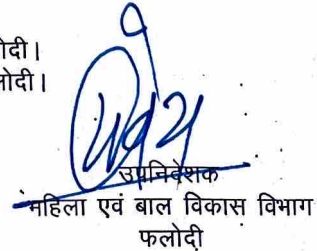 लोदी।
लोदी।
उपनिदेशक
महिला एवं बाल विकास विभाग
फलोदी